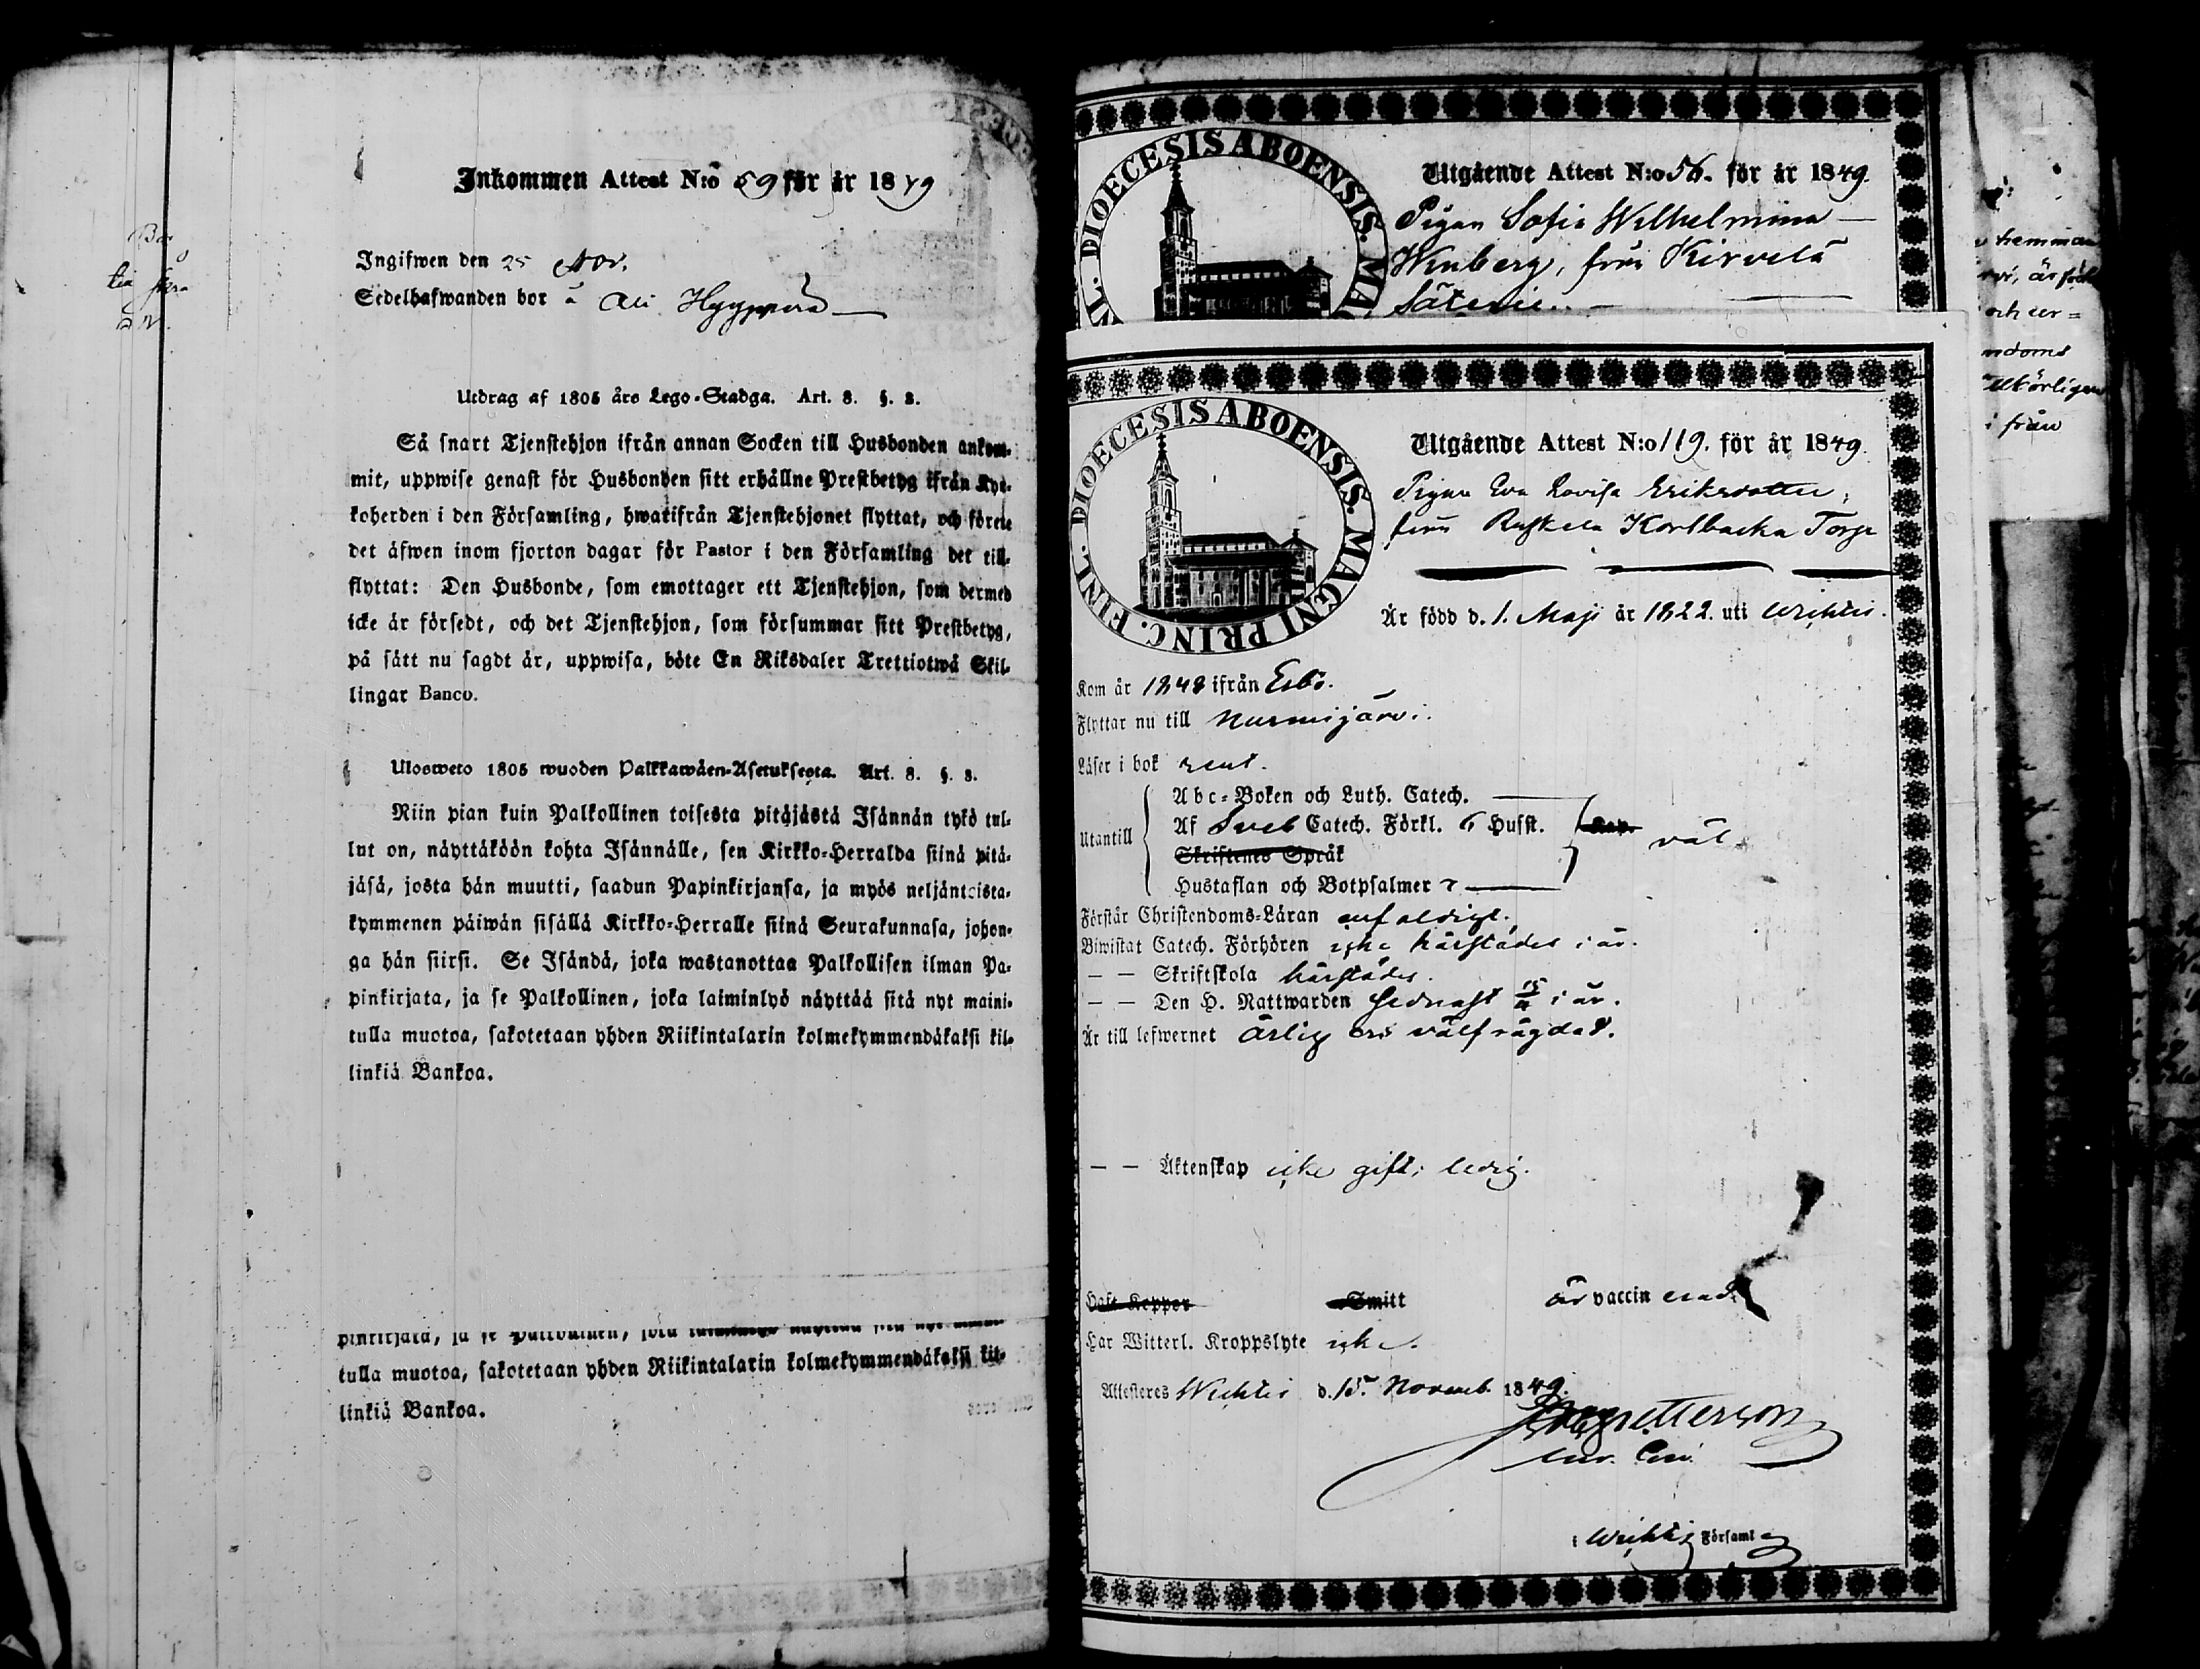 Inkommen Attest N:o 59 för år 1849
Ingifwen den 25 Nov.
Sedelhafwanden bor å Ali Hyyppärä
Utdrag af 1805 års Lego-Stadga. Art. 8. §. 8.
Så snart Tjenstehjon ifrån annan Socken till Husbonden ankom-
mit, uppwise genast för Husbonden sitt erhållne Prestbetyg ifrån Kyr-
koherden i den Församling, hwarifrån Tjenstehjonet flyttat, och förete
det äfwen inom fjorton dagar för Pastor i den Församling det till-
flyttat: Den Husbonde, som emottager ett Tjenstehjon, som dermed
icke är försedt, och det Tjenstehjon, som försummar sitt Prestbetyg,
på sätt nu sagdt är, uppwisa, böte En Riksdaler Trettiotwå Skil-
lingar Banco.
Ulosweto 1805 wuoden Palkkawäen-Asetuksesta. Art. 8. §. 8.
Niin pian kuin Palkollinen toisesta pitäjästä Isännän tykö tul-
lut on, näyttäköön kohta Isännälle, sen Kirkko-Herralda siinä pitä-
jäsä, josta hän muutti, saadun Papinkirjansa, ja myös neljäntoista-
kymmenen päiwän sisällä Kirkko-Herralle siinä Seurakunnasa, johon-
ga hän siirsi. Se Isändä, joka wastanottaa Palkollisen ilman Pa-
pinkirjata, ja se Palkollinen, joka laiminlyö näyttää sitä nyt maini-
tulla muotoa, sakotetaan yhden Riikintalarin kolmekymmendäkaksi kil-
linkiä Bankoa.
pinkirjata, ja se Palkollinen, joka laiminlyö näyttää sitä nyt
tulla muotoa, sakotetaan yhden Riikintalarin kolmekymmendäkaksi kil-
linkiä Bankoa.
DIOECESIS ABOENSIS. MA
Utgående Attest N:o 56. för år 1849.
Pigan Sofia Wilhelmina
Winberg, från Kirvelä
Säteri
DIOECESIS ABOENSIS. MAGNI PRINC. FINL.
Utgående Attest N:o 119. för år 1849.
Pigan Eva Lovisa Eriksdotter,
från Ruskela Korlbacka Torp
Är född d. 1. Maji år 1822. uti Wichtis.
Kom år 1848 ifrån Esbo.
Flyttar nu till Nurmijärvi.
Läser i bok rent.
Utantill
Abc-Boken och Luth. Catech.
Af Sveb Catech. Förkl. 6 Husst. Kap. väl
Skriftenes Språk
Hustaflan och Botpsalmer 7
Förstår Christendoms-Läran enfaldigt.
Biwistat Catech. Förhören icke härstädes i år.
— — Skriftskola härstädes.
— — Den H. Nattwarden sednast i år.
Är till lefwernet ärlig och välfrägdad.
— — Äktenskap icke gift; ledig.
Haft Koppor Smitt är vaccinerad.
Har Witterl. Kroppslyte icke.
Attesteras Wichtis d. 15. Novemb. 1849.
i Wichtis Församl
hemman
är född
och
ndoms
ifrån